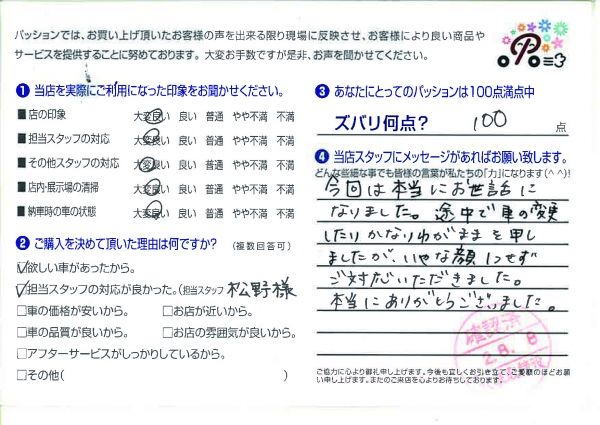 パッションでは、お買い上げ頂いたお客様の声を出来る限り現場に反映させ、お客様により良い商品や
サービスを提供することに努めております。大変お手数ですが是非、お声を聞かせてください。
❶ 当店を実際にご利用になった印象をお聞かせください。
■店の印象 大変良い 良い 普通 やや不満 不満
■担当スタッフの対応 大変良い 良い 普通 やや不満 不満
■その他スタッフの対応 大変良い 良い 普通 やや不満 不満
■店内・展示場の清掃 大変良い 良い 普通 やや不満 不満
■納車時の車の状態 大変良い 良い 普通 やや不満 不満
❷ ご購入を決めて頂いた理由は何ですか? (複数回答可)
☑欲しい車があったから。
☑担当スタッフの対応が良かった。(担当スタッフ 松野様
□車の価格が安いから。 □お店が近いから。
□車の品質が良いから。 □お店の雰囲気が良いから。
□アフターサービスがしっかりしているから。
□その他( )
❸ あなたにとってのパッションは100点満点中
ズバリ何点? 100 点
❹ 当店スタッフにメッセージがあればお願い致します。
どんな些細な事でも皆様の言葉が私たちの「力」になります(^^)!
今回は本当にお世話に
なりました。途中で車の変更
したりかなりわがままを申し
ましたが、いやな顔1つせず
ご対応いただきました。
本当にありがとうございました。
確認済
2.8.8
ご協力に心より御礼申し上げます。今後も宜しくお引き立て、ご愛顧のほどお願
い申し上げます。またのご来店を心よりお待ちしております。